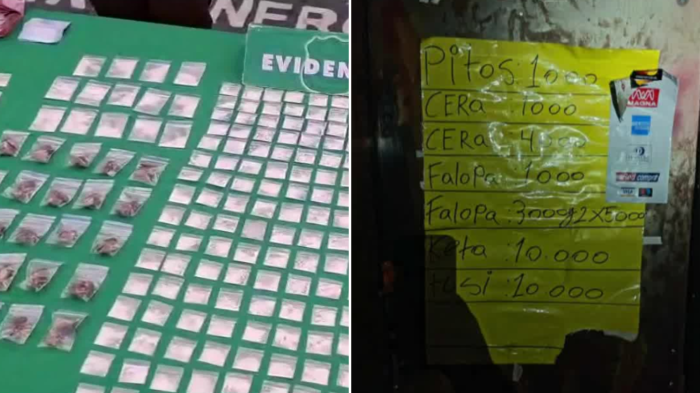 NERO
EVIDEN
Pitos : 1000
CERA : 1000
CERA : 4000
Falopa : 1000
Falopa : 3000g2x5000
Keta : 10.000
tusi : 10.000
MAGNA
VISA